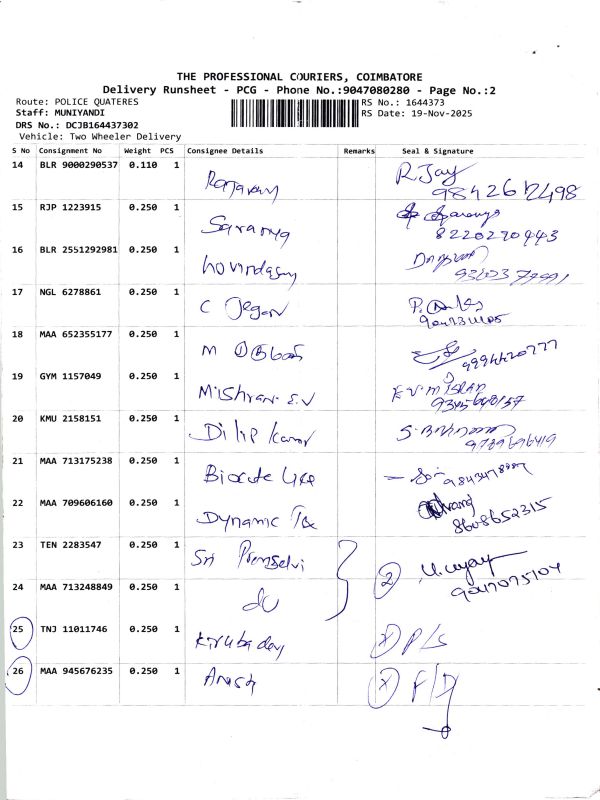 THE PROFESSIONAL COURIERS, COIMBATORE
Delivery Runsheet - PCG - Phone No.:9047080280 - Page No.:2
Route: POLICE QUATERES
Staff: MUNIYANDI
DRS No.: DCJB164437302
Vehicle: Two Wheeler Delivery
RS No.: 1644373
RS Date: 19-Nov-2025
S No Consignment No Weight PCS Consignee Details Remarks Seal & Signature
14 BLR 9000290537 0.110 1 R. Jay
15 RJP 1223915 0.250 1 Saranya
8220220443
16 BLR 2551292981 0.250 1
17 NGL 6278861 0.250 1 C Jegan
18 MAA 652355177 0.250 1 M
9994420777
19 GYM 1157049 0.250 1 Mishran. E.V
20 KMU 2158151 0.250 1 Dilip Kumar
9789696419
21 MAA 713175238 0.250 1
22 MAA 709606160 0.250 1 Dynamic
8608652315
23 TEN 2283547 0.250 1 Sri Premselvi
2
9047075104
24 MAA 713248849 0.250 1 do
25 TNJ 11011746 0.250 1 Kirubadev P/S
26 MAA 945676235 0.250 1 F/D